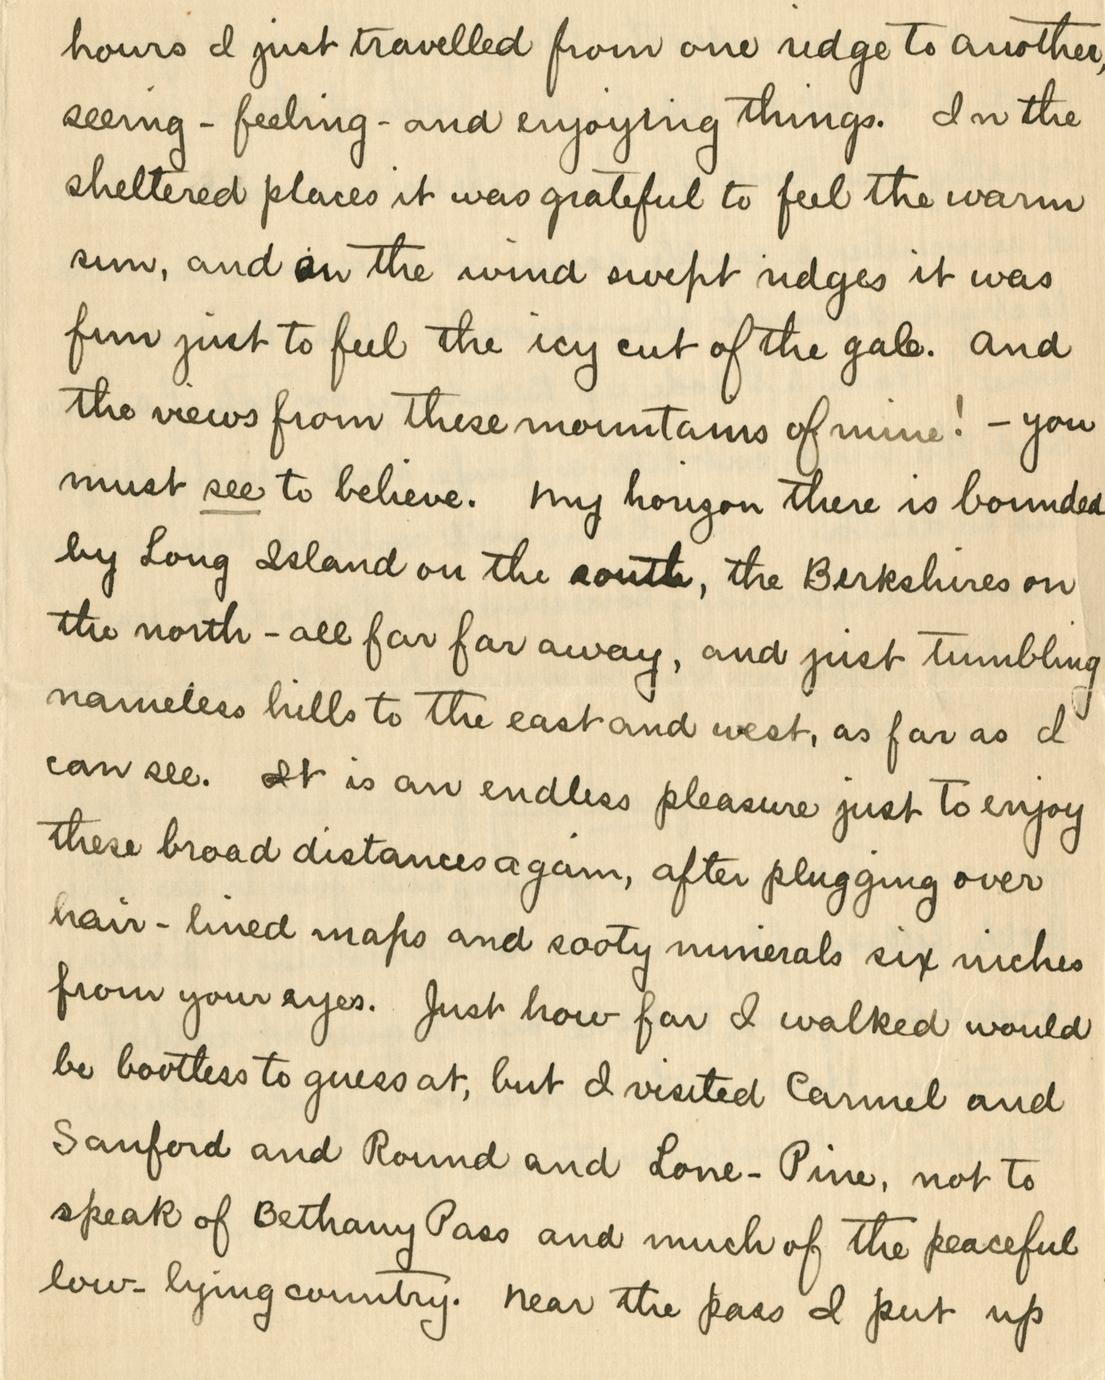 hours I just travelled from one ridge to another,
seeing - feeling - and enjoying things. In the
sheltered places it was grateful to feel the warm
sun, and on the wind swept ridges it was
fun just to feel the icy cut of the gale. And
the views from these mountains of mine! - you
must see to believe. My horizon there is bounded
by Long Island on the south, the Berkshires on
the north - all far far away, and just tumbling
nameless hills to the east and west, as far as I
can see. It is an endless pleasure just to enjoy
these broad distances again, after plugging over
hair-lined maps and sooty minerals six inches
from your eyes. Just how far I walked would
be bootless to guess at, but I visited Carmel and
Sanford and Round and Lone-Pine, not to
speak of Bethany Pass and much of the peaceful
low-lying country. Near the pass I put up